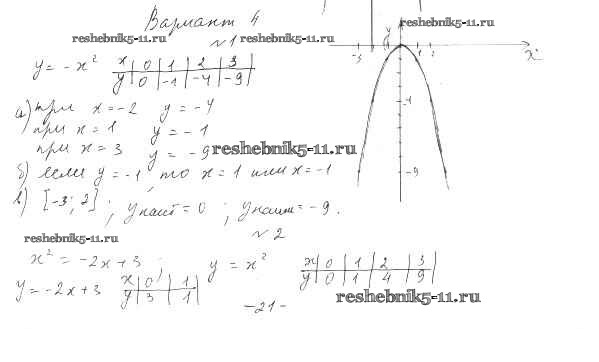 Вариант 4
reshebnik5-11.ru
reshebnik5-11.ru
№1
y = -x²
x | 0 | 1 | 2 | 3
y | 0 | -1 | -4 | -9
а) при x = -2 y = -4
при x = 1 y = -1
при x = 3 y = -9
reshebnik5-11.ru
б) если y = -1, то x = 1 или x = -1
в) [-3; 2]; y наиб = 0; y наим = -9.
y
-3
1
2
x
-4
-9
reshebnik5-11.ru
№2
x² = -2x + 3;
y = x²
x | 0 | 1 | 2 | 3
y | 0 | 1 | 4 | 9
y = -2x + 3
x | 0 | 1
y | 3 | 1
reshebnik5-11.ru
-21-